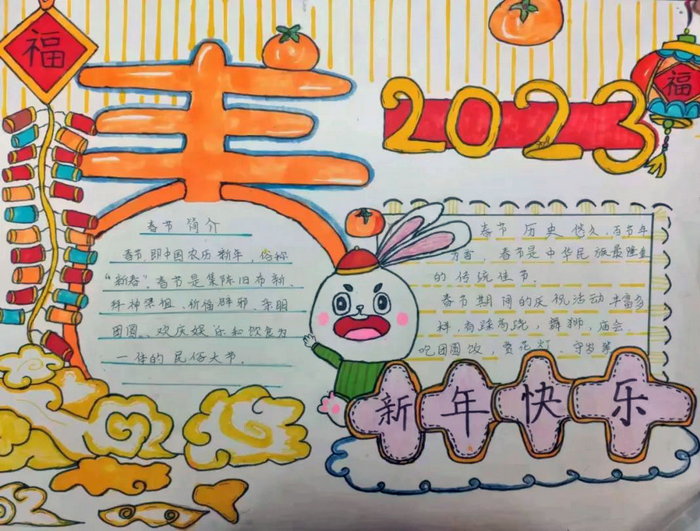 福
春
2023
福
春节简介
春节即中国农历新年，俗称
“新春”，春节是集除旧布新、
拜神祭祖、祈福辟邪、亲朋
团圆、欢庆娱乐和饮食为
一体的民俗大节．
春节历史悠久，百节年
为首，春节是中华民族最隆重
的传统佳节．
春节期间的庆祝活动丰富多
样，有踩高跷，舞狮，庙会．
吃团圆饭，赏花灯．守岁等
新年快乐